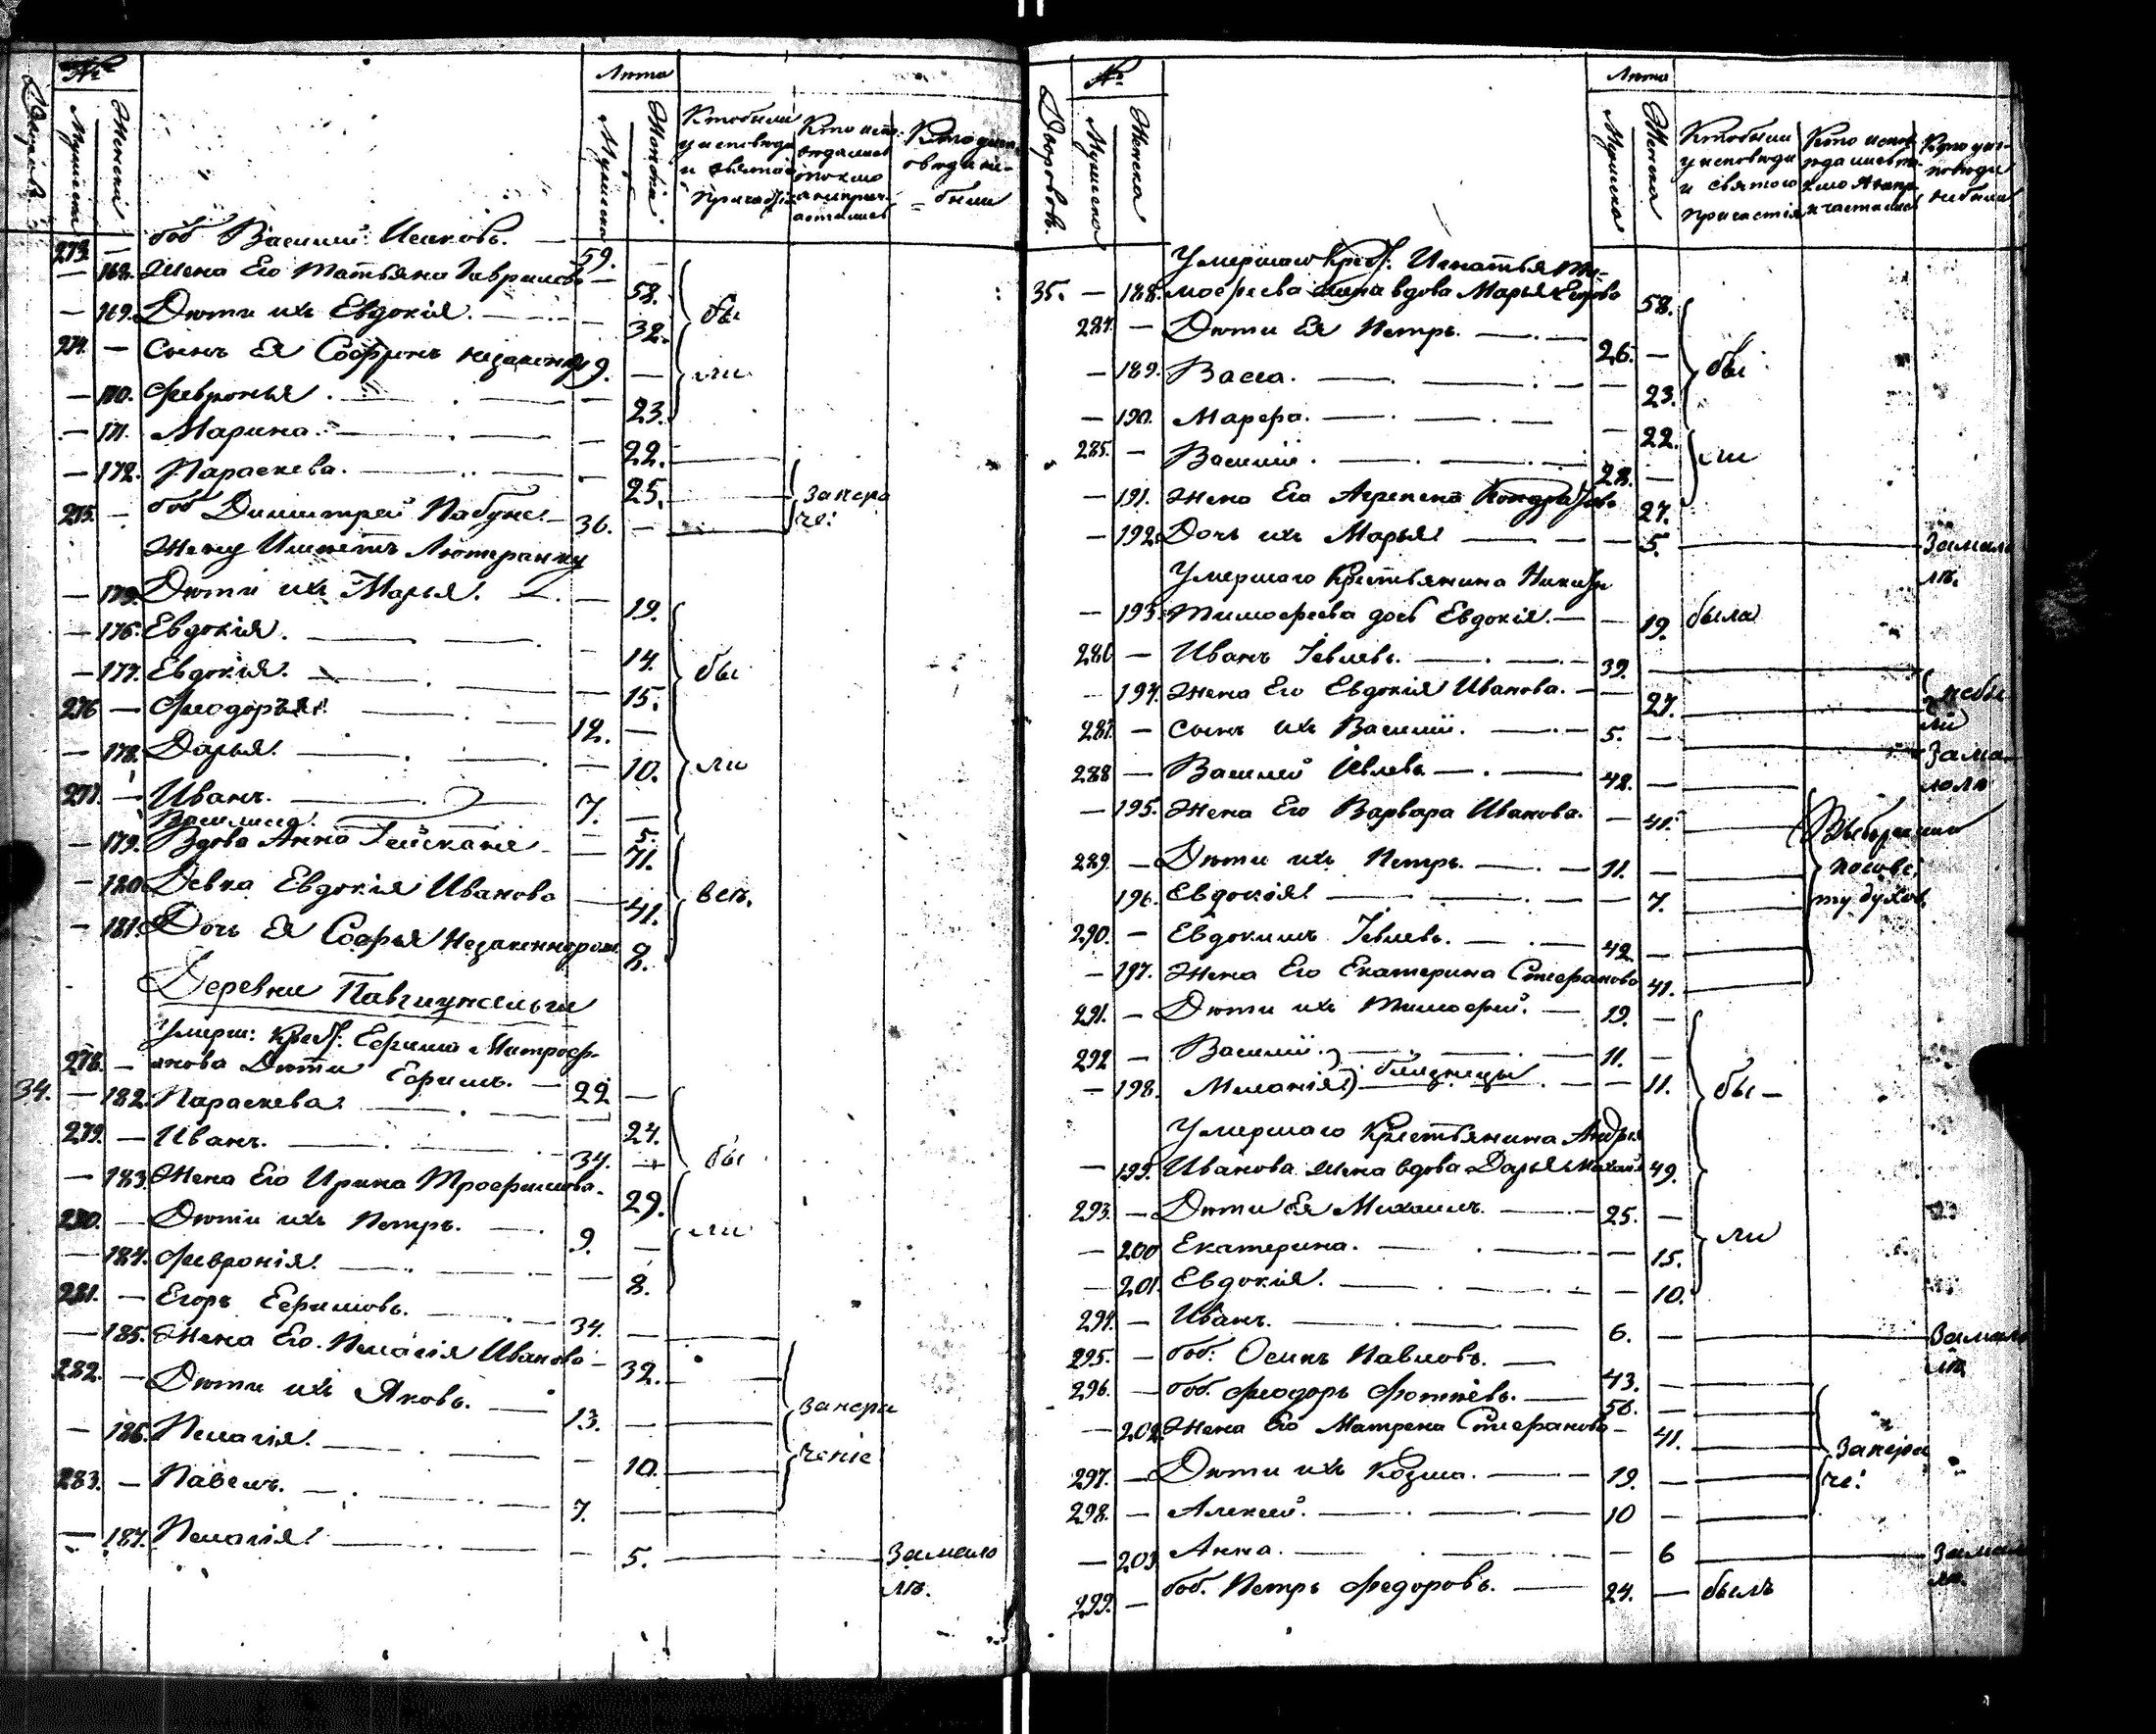 № Лѣта
Дворовъ Мужеска Женска Мужеска Женска
Кто были у исповѣди и святаго причастія
Кто исповѣдались токмо а не причастились
Кто у исповѣди не были
273. — боб Василий Исаковъ. — 59. —
— 168. Жена Его Татьяна Гаврилова — 58. бы
— 169. Дѣти ихъ Евдокія. — 32.
274. — Сынъ Ея Софронъ незаконно 9. — ли
— 170. Февронья. — 23.
— 171. Марина. — 22.
— 172. Параскева. — 25. Запере
275. — боб Димитрей — 36. — че:
Жену Имѣетъ Лютеранку
Дѣти ихъ Марья. — 19.
— 176. Евдокія. — 14. бы
— 177. Евдокія. — 15.
276 — Феодоръ 12. —
— 178. Дарья. — 10. ли
277. — Иванъ. 7. —
Василиса. — 5.
— 179. Вдова Анна — 71.
— 180. Девка Евдокія Иванова — 41. всѣ.
— 181. Дочь Ея Софья Незаконнорож 8.
Деревни
Умерш: Крест. Ефима Митроф-
278. — анова Дѣти Ефимъ. — 22 —
34. — 182. Параскева. — 24.
279. — Иванъ. 34. — бы
— 183. Жена Его Ирина Трофимова. 29.
280. — Дѣти ихъ Петръ. 9. — ли
— 184. Февронія. — 8.
281. — Егоръ Ефимовъ. 34. —
— 185. Жена Его Пелагія Иванова — 32.
282. — Дѣти ихъ Яковъ. 13. — Запере
— 186. Пелагія. — 10. ченіе
283. — Павелъ. 7. —
— 187. Пелагія. — 5. За мало
лѣ.
№ Лѣта
Дворовъ Мужеска Женска Мужеска Женска
Кто были у исповѣди и святаго причастія
Кто исповѣдались токмо а не причастились
Кто у исповѣди не были
Умершаго Крест. Игнатья Ти-
35. — 188. мофеева жена вдова Марья Егорова 58.
284. — Дѣти Ея Петръ. 26. —
— 189. Васса. — 23. бы
— 190. Марфа. — 22.
285. — Василий. 28. — ли
— 191. Жена Его Агрепена Кондратова 27.
— 192. Дочь ихъ Марья — 5. За мало
лѣ.
Умершаго Крестьянина Никиты
— 193. Тимофеева дочь Евдокія. — 19. была
286 — Иванъ Іевлевъ. 39. —
— 194. Жена Его Евдокія Иванова. — 27. не бы
287. — Сынъ ихъ Василий. 5. — ли
За ма-
288 — Василей Іевлевъ 42. — лолѣ
— 195. Жена Его Варвара Иванова. — 41.
289. — Дѣти ихъ Петръ. 11. — по сове
196. Евдокія — 7. ту духов
290. — Евдокимъ Іевлевъ. 42. —
— 197. Жена Его Екатерина Стефанова 41.
291. — Дѣти ихъ Тимофей. 19. —
292 — Василий. 11. —
близнецы
— 198. Меланія — 11. бы —
Умершаго Крестьянина Андрея
— 199. Иванова жена вдова Дарья Михай 49.
293. — Дѣти Ея Михаилъ. 25. —
— 200 Екатерина. — 15. ли
— 201. Евдокія. — 10.
294. — Иванъ. 6. — За мало
лѣ
295. — боб: Осипъ Павловъ. 43. —
296. — боб. Феодоръ Фотіевъ. 50. —
— 202. Жена Его Матрена Стефанова — 41. Запере
297. — Дѣти ихъ Козма. 19. — че:
298. — Алексей. 10 —
— 203. Анна. — 6 За мало
лѣ.
299. — боб. Петръ Федоровъ. 24. — былъ